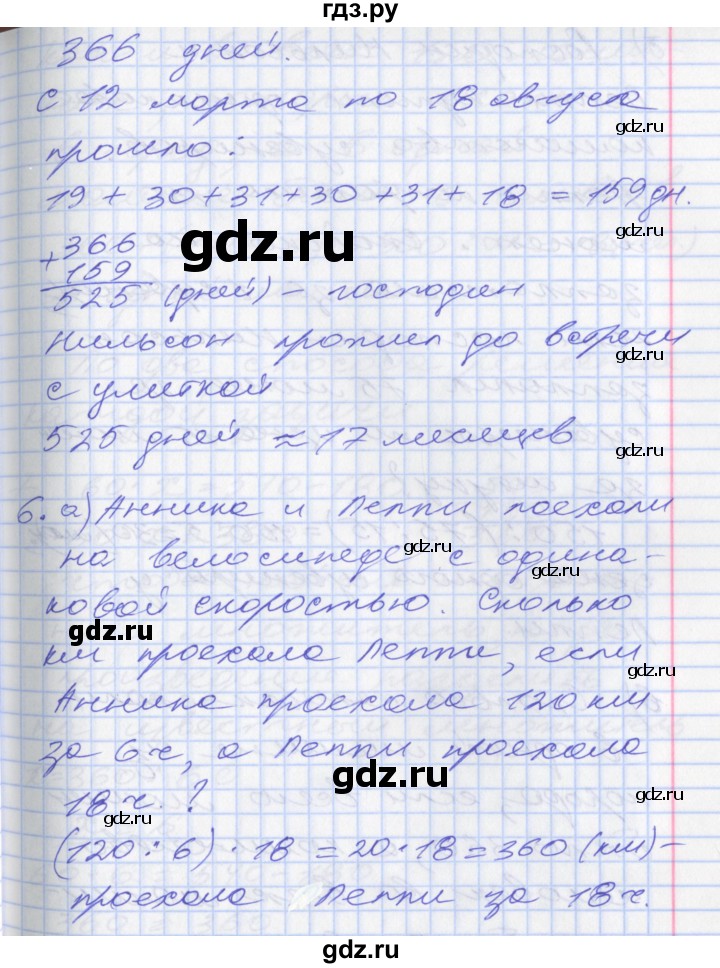 гдз.ру
366 дней.
С 12 марта по 18 августа
gdz.ru
прошло:
19 + 30 + 31 + 30 + 31 + 18 = 159 дн.
gdz.ru
+ 366
159
gdz.ru
525 (дней) – господин
Нильсон прожил до встречи
gdz.ru
с улиткой
525 дней ≈ 17 месяцев
6. а) Анника и Пеппи поехали
gdz.ru
на велосипеде с одина-
gdz.ru
gdz.ru
ковой скоростью. Сколько
gdz.ru
км проехала Пеппи, если
Анника проехала 120 км
за 6 ч, а Пеппи проехала
gdz.ru
18 ч. ?
gdz.ru
gdz.ru
(120 : 6) · 18 = 20 · 18 = 360 (км) –
проехала Пеппи за 18 ч.
gdz.ru
gdz.ru